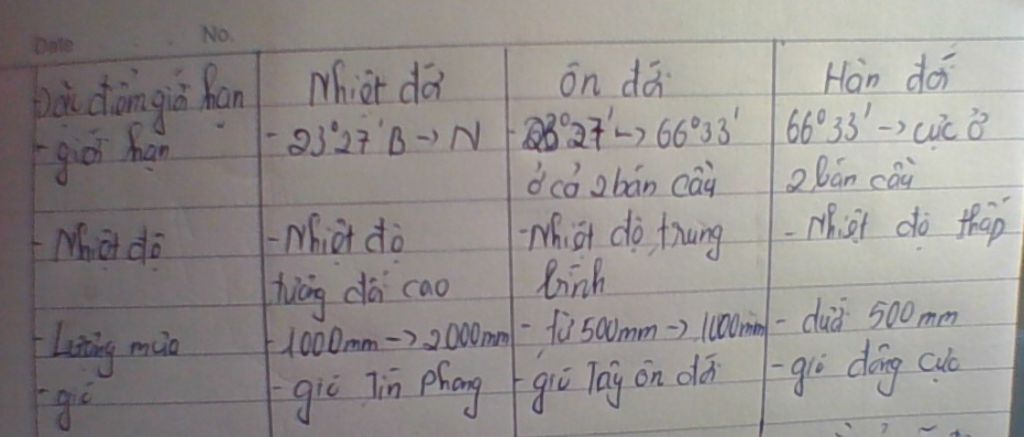 Date No.
Đặc điểm giới hạn Nhiệt đới Ôn đới Hàn đới
- giới hạn - 23°27' B -> N - 23°27' -> 66°33' 66°33' -> cực ở
ở cả 2 bán cầu 2 bán cầu
- Nhiệt độ - Nhiệt độ - Nhiệt độ trung - Nhiệt độ thấp
tương đối cao bình
- Lượng mưa - 1000mm -> 2000mm - từ 500mm -> 1000mm - dưới 500mm
- gió - gió Tín Phong - gió Tây ôn đới - gió đông cực